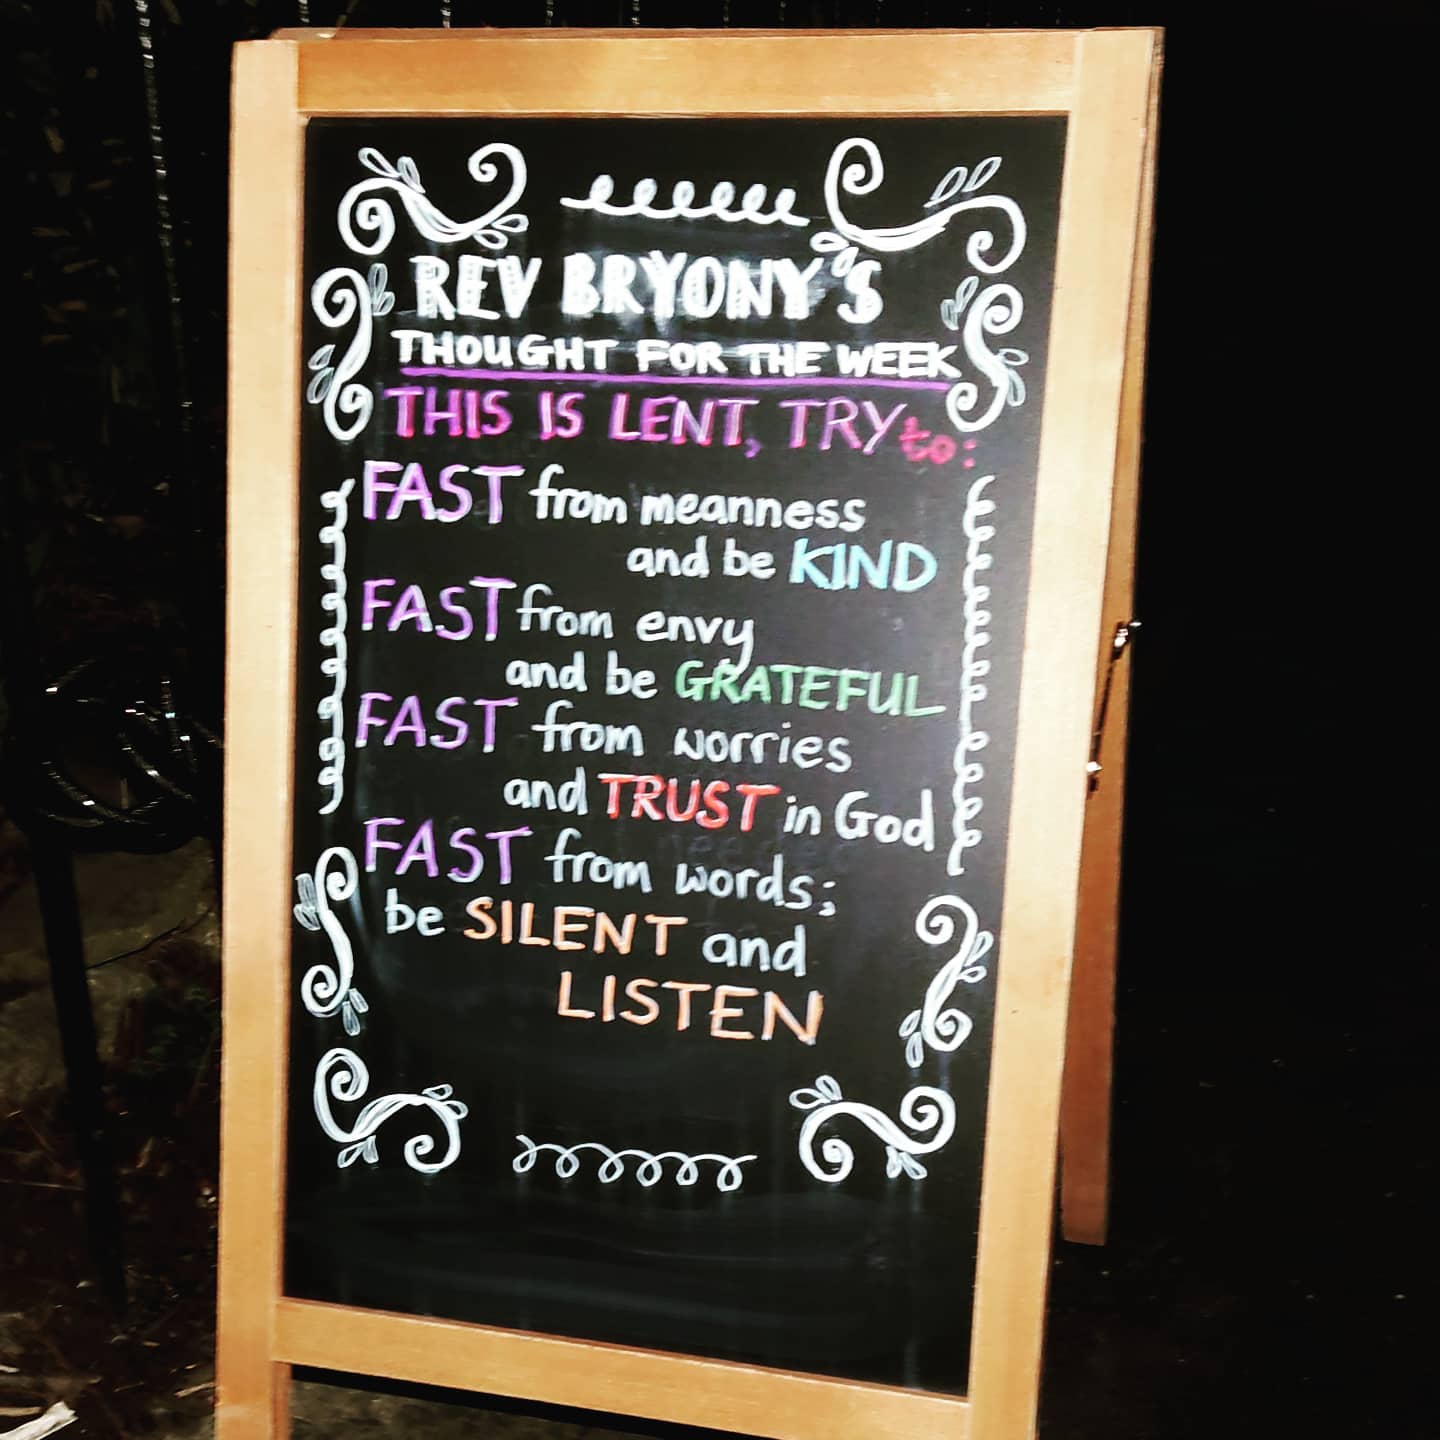 REV BRYONY'S
THOUGHT FOR THE WEEK
THIS IS LENT, TRY to:
FAST from meanness
and be KIND
FAST from envy
and be GRATEFUL
FAST from worries
and TRUST in God
FAST from words;
be SILENT and
LISTEN